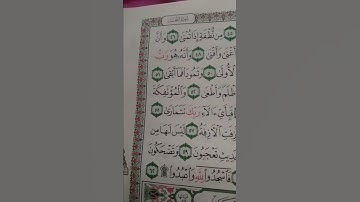 ٤٥ مِن نُّطْفَةٍ إِذَا تُمْنَىٰ ٤٦ وَأَنَّ
أَغْنَىٰ وَأَقْنَىٰ ٤٨ وَأَنَّهُۥ هُوَ رَبُّ
ٱلْأُولَىٰ ٥٠ وَثَمُودَا۟ فَمَآ أَبْقَىٰ ٥١
أَظْلَمَ وَأَطْغَىٰ ٥٢ وَٱلْمُؤْتَفِكَةَ
فَبِأَىِّ ءَالَآءِ رَبِّكَ تَتَمَارَىٰ ٥٥
زِفَتِ ٱلْءَازِفَةُ ٥٧ لَيْسَ لَهَا مِن
دِيثِ تَعْجَبُونَ ٥٩ وَتَضْحَكُونَ
٦١ فَٱسْجُدُوا۟ لِلَّهِ وَٱعْبُدُوا۟ ٦٢